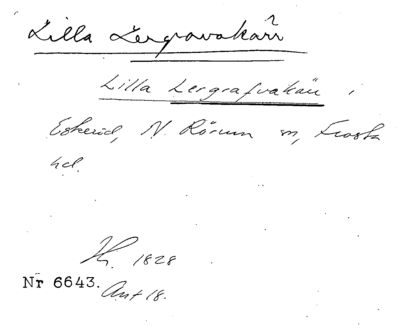 Lilla Lergravakärr
Lilla Lergrafvakärr i
Eskerid, N. Rörum sn, Frosta
hd.
H. 1828
Nr 6643.
Ant 18.